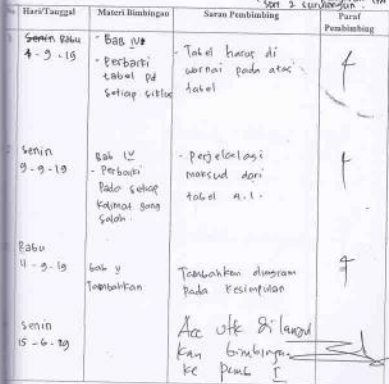 Sort 2 surundangun.
No Hari/Tanggal Materi Bimbingan Saran Pembimbing Paraf Pembimbing
Senin Rabu
4 - 9 - 19
- Bab IV
- Perbaiki
tabel pd
setiap siklus
- Tabel harus di
warnai pada atas
tabel
Senin
9 - 9 - 19
Bab IV
- Perbaiki
Pada setiap
kalimat yang
salah.
- perjelaslagi
maksud dari
tabel 4.1.
Rabu
11 - 9 - 19
bab V
Tambahkan
Tambahkan diagram
pada kesimpulan
Senin
15 - 6 - 19
Acc utk dilanjut
kan bimbingan
ke pemb I